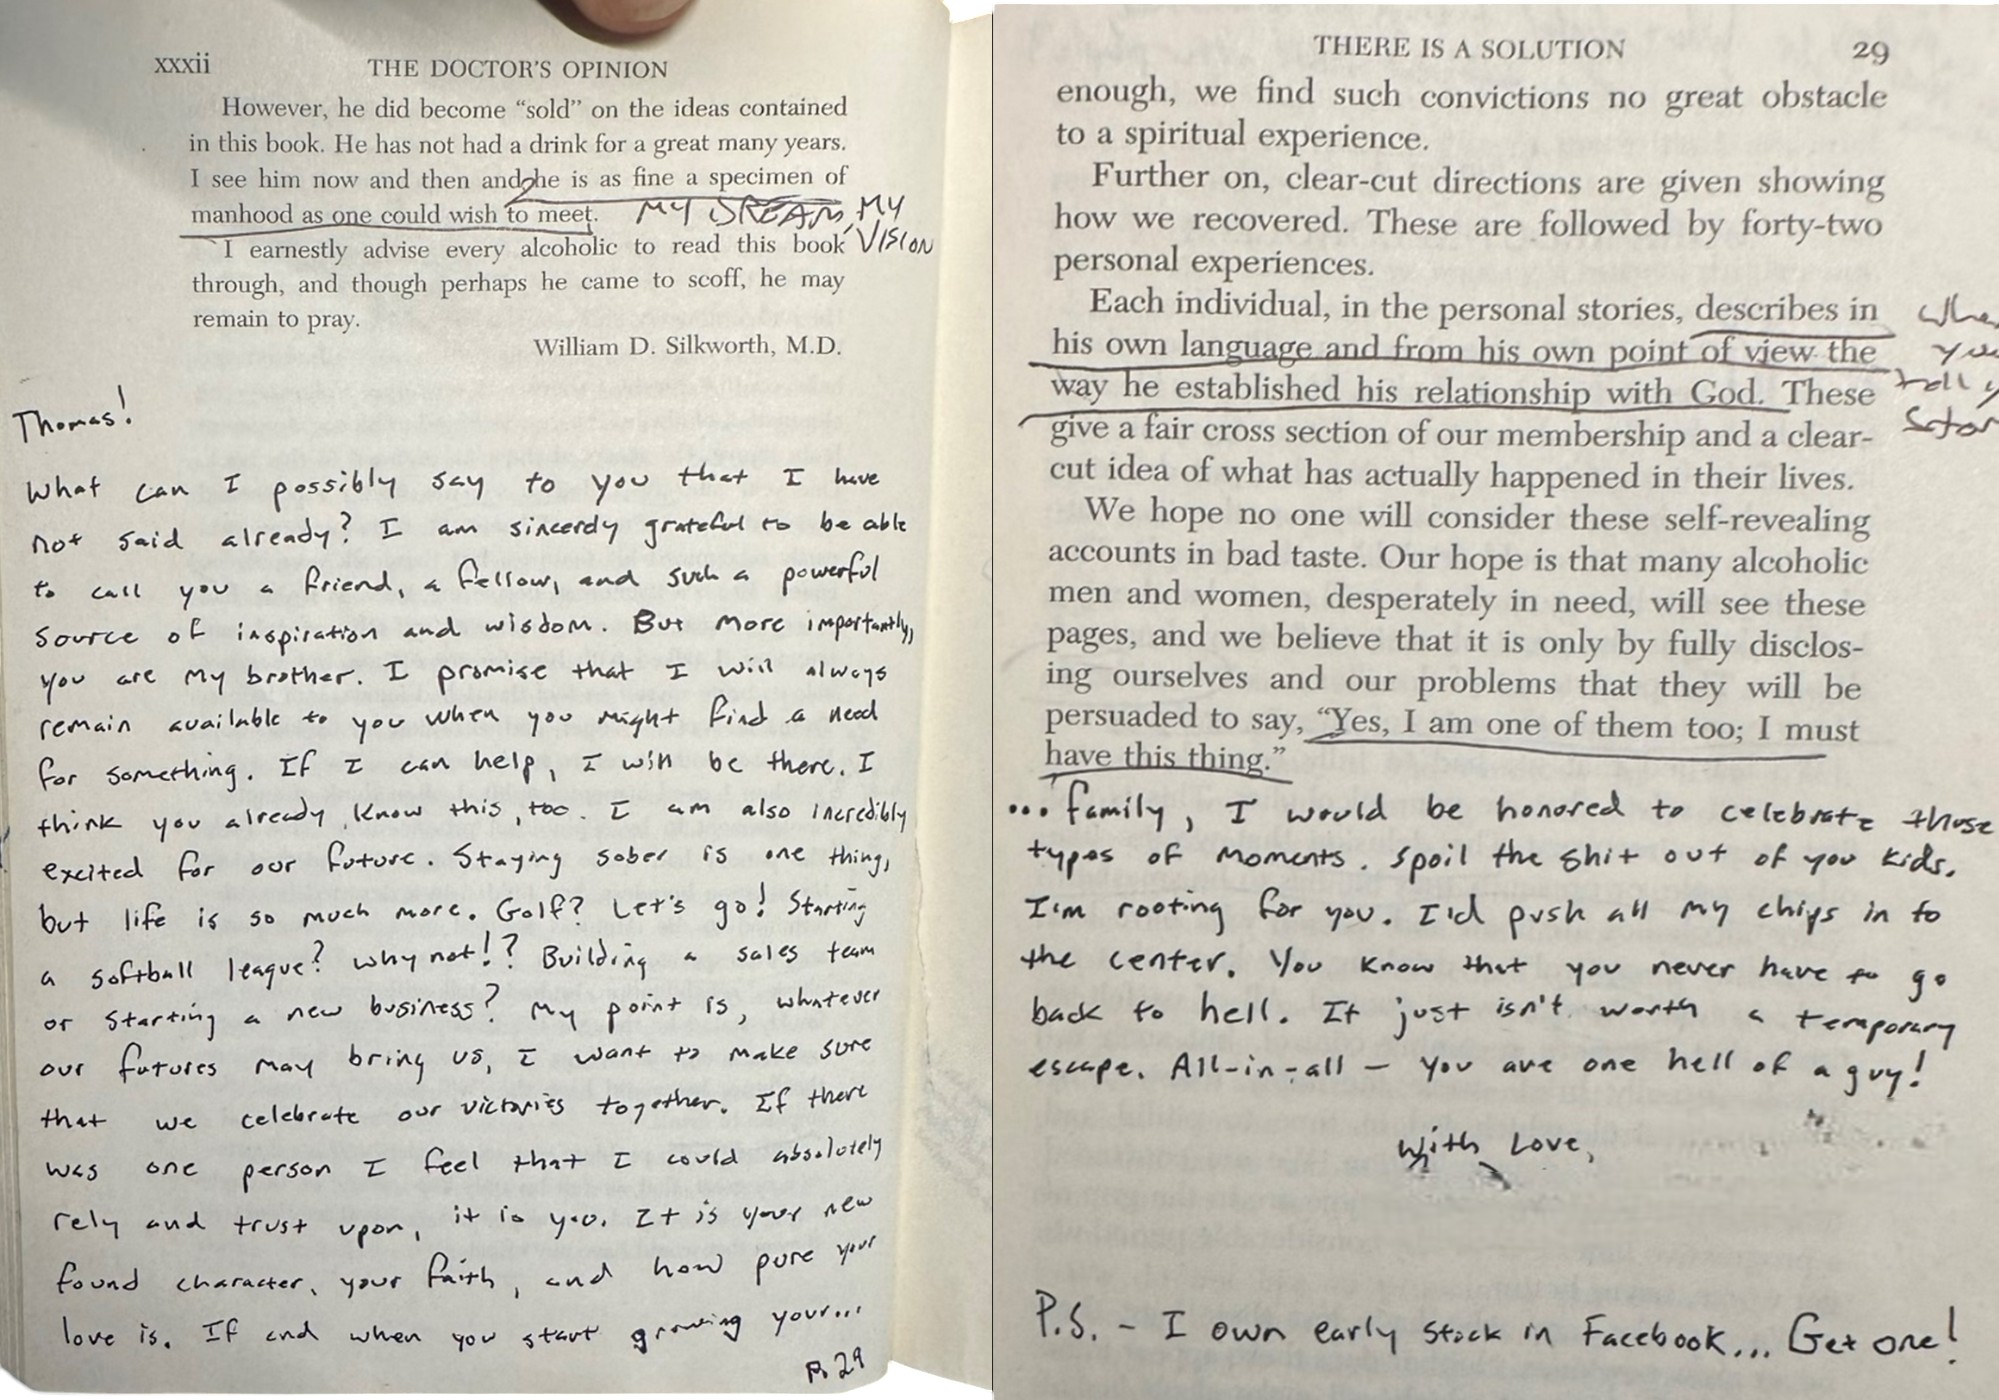 xxxii THE DOCTOR'S OPINION
However, he did become “sold” on the ideas contained
in this book. He has not had a drink for a great many years.
I see him now and then and he is as fine a specimen of
manhood as one could wish to meet. MY DREAM, MY
VISION
I earnestly advise every alcoholic to read this book
through, and though perhaps he came to scoff, he may
remain to pray.
William D. Silkworth, M.D.
Thomas!
What can I possibly say to you that I have
not said already? I am sincerely grateful to be able
to call you a friend, a fellow, and such a powerful
source of inspiration and wisdom. But more importantly,
you are my brother. I promise that I will always
remain available to you when you might find a need
for something. If I can help, I will be there. I
think you already know this, too. I am also incredibly
excited for our future. Staying sober is one thing,
but life is so much more. Golf? Let's go! Starting
a softball league? Why not!? Building a sales team
or starting a new business? My point is, whatever
our futures may bring us, I want to make sure
that we celebrate our victories together. If there
was one person I feel that I could absolutely
rely and trust upon, it is you. It is your new
found character, your faith, and how pure your
love is. If and when you start growing your...
P. 29
THERE IS A SOLUTION 29
enough, we find such convictions no great obstacle
to a spiritual experience.
Further on, clear-cut directions are given showing
how we recovered. These are followed by forty-two
personal experiences.
Each individual, in the personal stories, describes in
his own language and from his own point of view the
way he established his relationship with God. These
give a fair cross section of our membership and a clear-
cut idea of what has actually happened in their lives.
We hope no one will consider these self-revealing
accounts in bad taste. Our hope is that many alcoholic
men and women, desperately in need, will see these
pages, and we believe that it is only by fully disclos-
ing ourselves and our problems that they will be
persuaded to say, “Yes, I am one of them too; I must
have this thing.”
... family, I would be honored to celebrate those
types of moments. Spoil the shit out of you kids.
I'm rooting for you. I'd push all my chips in to
the center. You know that you never have to go
back to hell. It just isn't worth a temporary
escape. All-in-all – You are one hell of a guy!
With Love,
P.S. - I own early stock in Facebook... Get one!